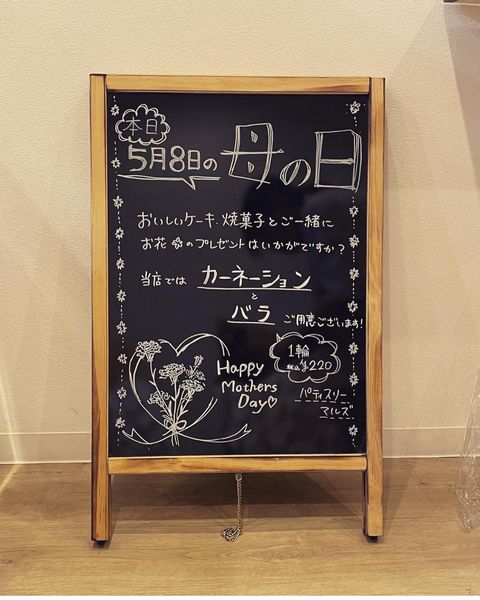 本日
5月8日の 母の日
おいしいケーキ、焼菓子とご一緒に
お花のプレゼントはいかがですか?
当店では カーネーション
と
バラ ご用意ございます!
1輪
¥220
Happy
Mothers
Day♡
パティスリー